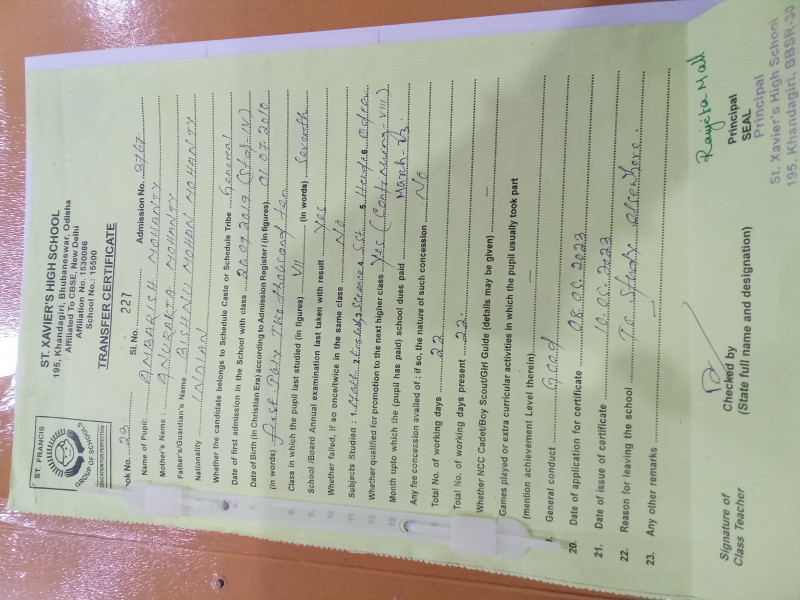 ST. FRANCIS
GROUP OF SCHOOLS
EDUCATION FOR PERFECTION
ST. XAVIER'S HIGH SCHOOL
195, Khandagiri, Bhubaneswar, Odisha
Affiliated To CBSE, New Delhi
Affiliation No. 1530086
School No.: 15500
TRANSFER CERTIFICATE
ook No. 23 Sl. No. 227 Admission No. 2767
Name of Pupil: AMBARISH MOHANTY
Mother's Name : ANURAKTA MOHANTY
Father's/Guardian's Name BISHNU MOHAN MOHANTY
Nationality INDIAN
Whether the candidate belongs to Schedule Caste or Schedule Tribe General
Date of first admission in the School with class 20.07.2019 (Std-IV)
Date of Birth (in Christian Era) according to Admission Register / (in figures) 01.07.2010
(in words) First July Two thousand ten
Class in which the pupil last studied (in figures) VII (in words) Seventh
School /Board Annual examination last taken with result Yes
Whether failed, if so once/twice in the same class No
Subjects Studied : 1. Math 2. English 3. Science 4. S.St. 5. Hindi 6. Odia
Whether qualified for promotion to the next higher class Yes (Continuing-VIII)
Month upto which the (pupil has paid) school dues paid March-23.
Any fee concession availed of : if so, the nature of such concession No
Total No. of working days 22
Total No. of working days present 22.
Whether NCC Cadet/Boy Scout/Girl Guide (details may be given) —
Games played or extra curricular activities in which the pupil usually took part
(mention achievement Level therein) —
General conduct Good
20. Date of application for certificate 08.05.2023
21. Date of issue of certificate 10.05.2023
22. Reason for leaving the school To Study elsewhere.
23. Any other remarks —
Signature of
Class Teacher
Checked by
(State full name and designation)
Ranjeeta Mall
Principal
SEAL
Principal
St. Xavier's High School
195, Khandagiri, BBSR-30
St. Xavier's High School
195, Khandagiri, BBSR-30